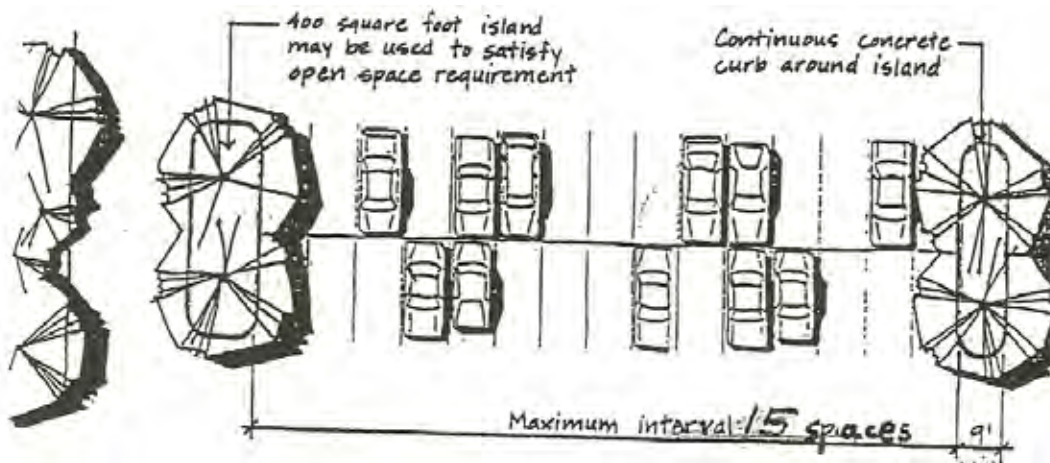 400 square foot island
may be used to satisfy
open space requirement
Continuous concrete
curb around island
Maximum interval: 15 spaces
9'